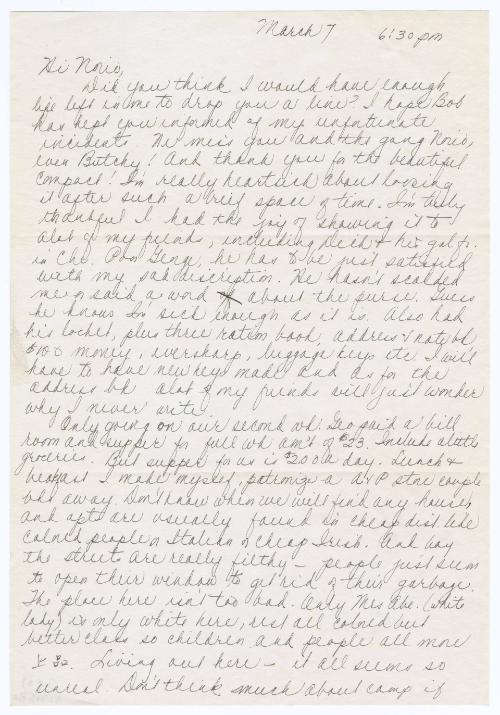 March 7 6:30 pm
Hi Norio,
Did you think I would have enough
life left in me to drop you a line? I hope Bob
has kept you informed of my unfortunate
incidents. We miss you and the gang Norio,
even Butchy! And thank you for the beautiful
compact! I'm really heartsick about loosing
it after such a brief space of time. I'm truly
thankful I had the joy of showing it to
alot of my friends, including & his gal fr.
in Chi. Poor George, he has to be just satisfied
with my sad discription. He hasn't scolded
me or said a word about the purse. Guess
he knows I'm sick enough as it is. Also had
his locket, plus three ration book, address & note bk
money, eversharp, luggage keys etc I will
have to have new keys made and as for the
address bk alot of my friends will just wonder
why I never write.
Only going on our second wk. Geo paid a bill
room and supper for full wk am't of $23. Include a little
groceries. But supper for us is $2.00 a day. Lunch &
breakfast I make myself, patronize a A&P store couple
blks away. Don't know when we will find any houses
and apts are usually found in cheap dist like
colored people or Italian or cheap Irish. And boy
the streets are really filthy - people just seem
to open their window to get rid of their garbage.
The place here isn't too bad. Only Mrs Abe. (white
lady) is only white here, rest all colored but
better class so children and people all more
Living out here - it all seems so
unreal. Don't think much about camp if